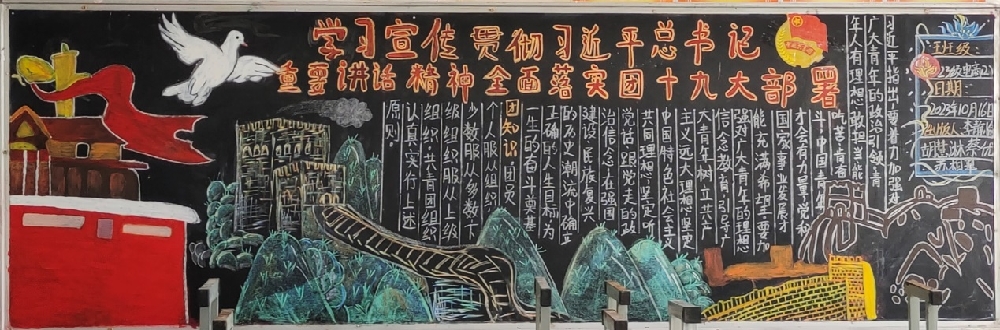 学习宣传贯彻习近平总书记
重要讲话精神全面落实团十九大部署
习近平指出，要着力加强对
广大青年的政治引领，青
年人有理想、敢担当、能
吃苦、肯奋
斗，中国青年
才会有力量，党和
国家事业发展才
能充满希望。要加
强对广大青年的理想
信念教育，引导广
大青年树立共产
主义远大理想，坚定
中国特色社会主义
共同理想，坚定听
党话、跟党走的政
治信念，在强国
建设、民族复兴
的历史潮流中确立
正确的人生目标，为
一生的奋斗奠基
团知识：团员
个人服从组织，
少数服从多数，下
级组织服从上级
组织，共青团组织
认真实行上述
原则。
班级：
日期：
2023年10月16日
出版人：